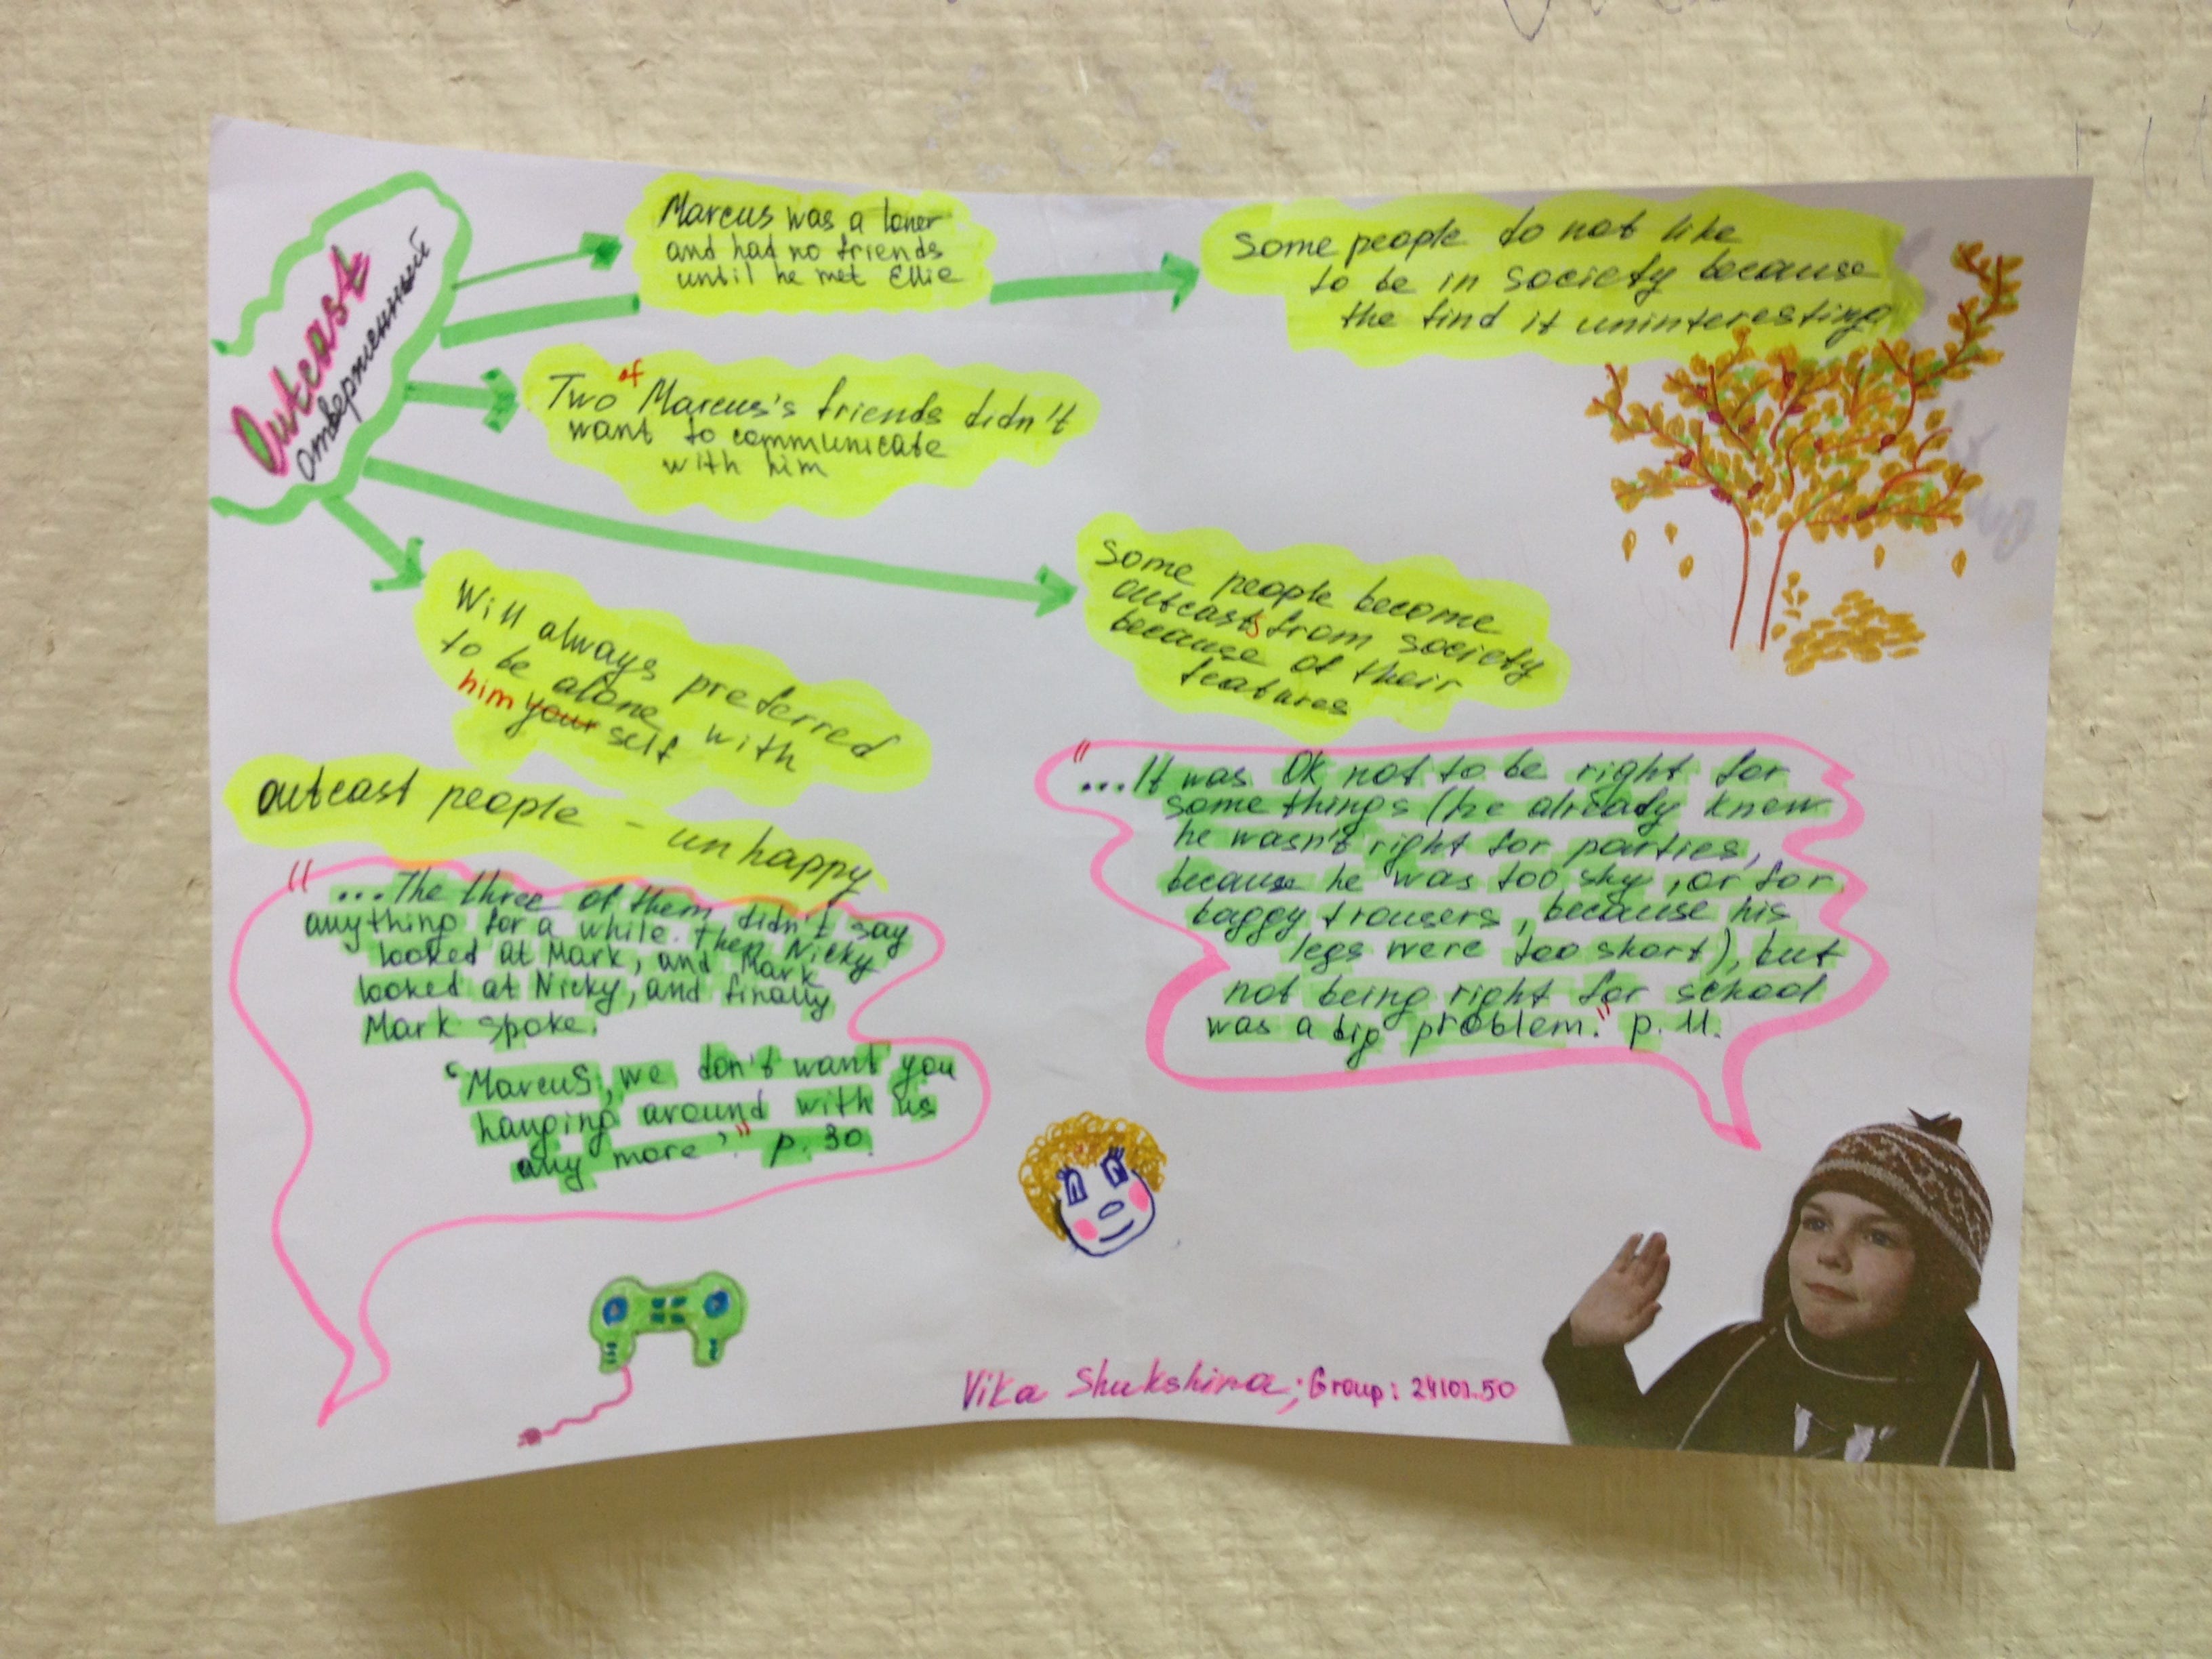 Outcast
отверженный
Marcus was a loner
and had no friends
until he met Ellie
Some people do not like
to be in society because
the find it uninteresting
of
Two Marcus's friends didn't
want to communicate
with him
Some people become
outcasts from society
because of their
features
Will always preferred
to be alone with
him your self
outcast people - unhappy
"...It was OK not to be right for
some things (he already knew
he wasn't right for parties,
because he was too shy, or for
baggy trousers, because his
legs were too short), but
not being right for school
was a big problem." p. 11.
"...The three of them didn't say
anything for a while. Then Nicky
looked at Mark, and Mark
looked at Nicky, and finally
Mark spoke.
'Marcus, we don't want you
hanging around with us
any more'." p. 30.
Vika Shukshina; Group: 24101.50